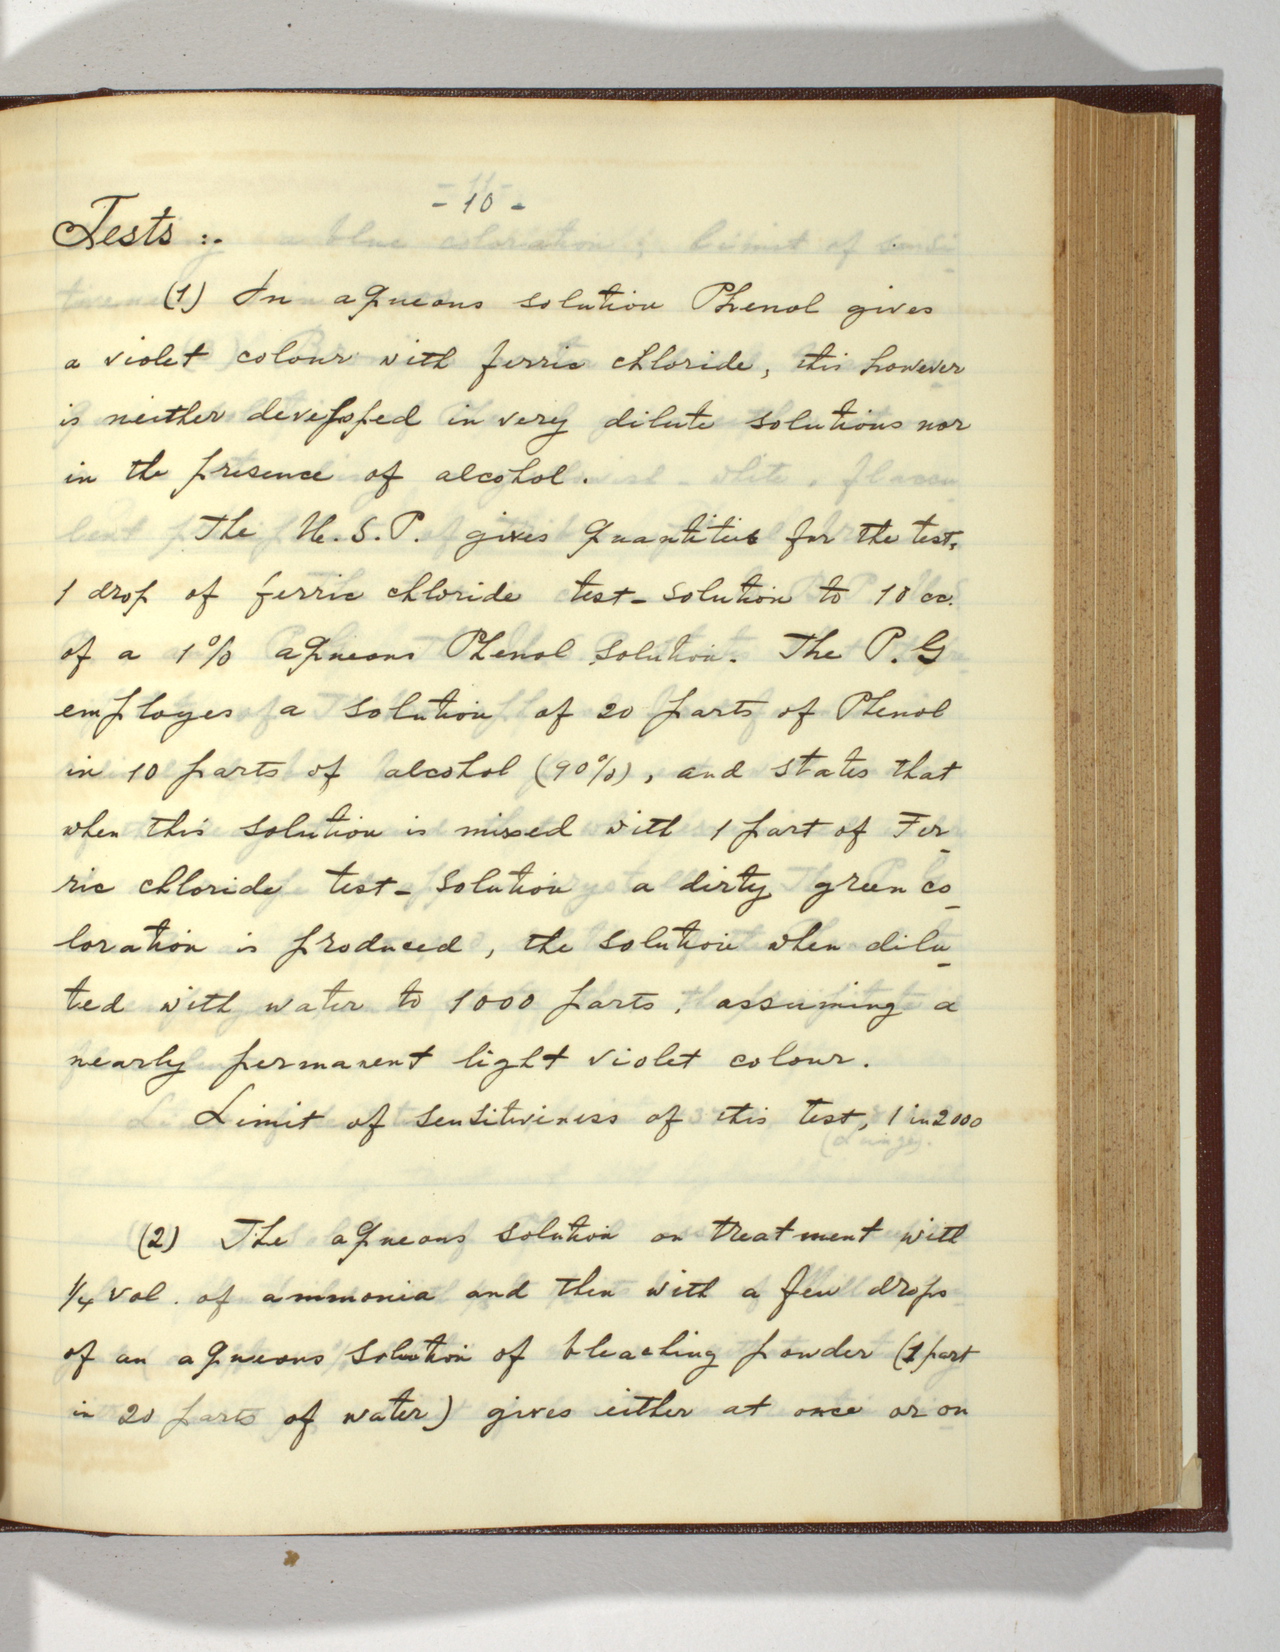 - 10 -
Tests :-
(1) In aqueous solution Phenol gives
a violet colour with ferric chloride, this however
is neither developed in very dilute solutions nor
in the presence of alcohol.
The U.S.P. gives quantities for the test,
1 drop of ferric chloride test-solution to 10 cc.
of a 1% aqueous Phenol solution. The P.G
employes a solution of 20 parts of Phenol
in 10 parts of alcohol (90%), and states that
when this solution is mixed with 1 part of Fer-
ric chloride test-solution a dirty green co-
loration is produced, the solution when dilu-
ted with water to 1000 parts, assuming a
nearly permanent light violet colour.
Limit of sensitiveness of this test, 1 in 2000
(2) The aqueous solution on treatment with
1/4 vol. of ammonia and then with a few drops
of an aqueous solution of bleaching powder (1 part
in 20 parts of water) gives either at once or on